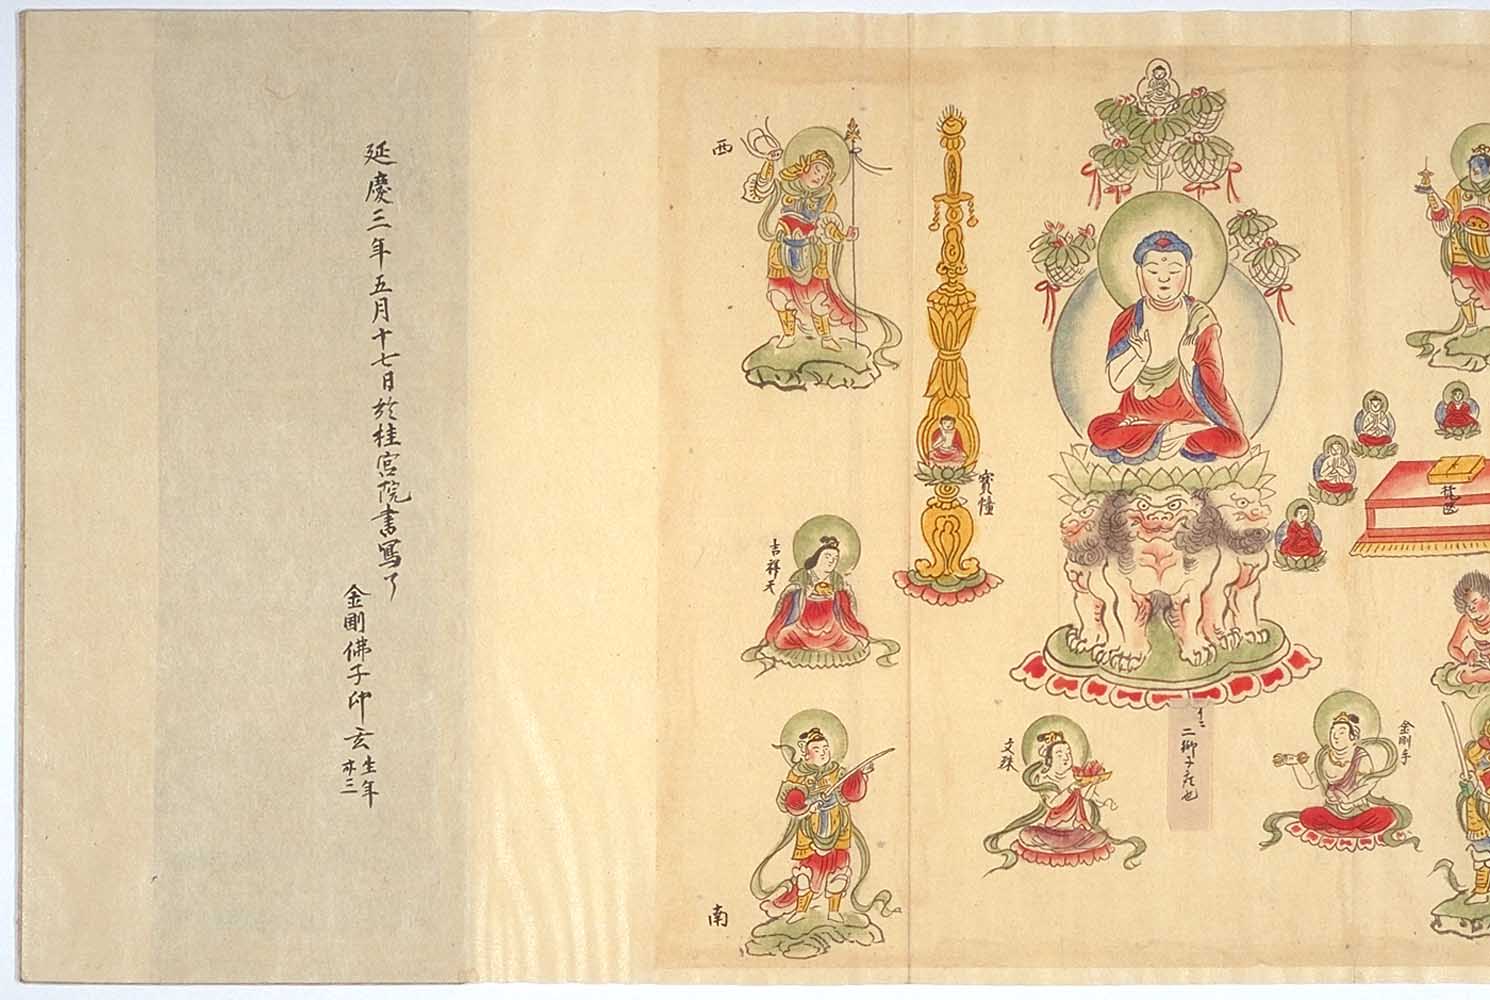 金剛手
梵夾
二獅子座也
文殊
寳幢
西
吉祥天
南
延慶三年五月十七日於桂宮院書寫了
金剛佛子印玄生年
卅三